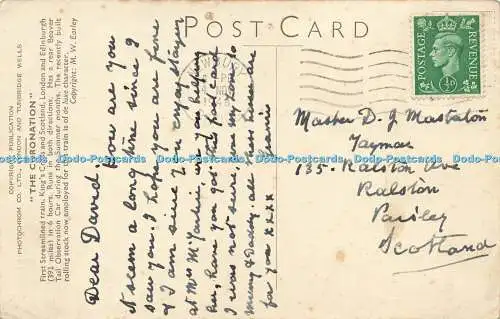 POST CARD
COPYRIGHT PUBLICATION
PHOTOCHROM CO. LTD., LONDON AND TUNBRIDGE WELLS
"THE CORONATION"
First Streamlined train, King's Cross and Scotland, London and Edinburgh
(391 miles) in 6 hours. Runs in both directions. Has a rear Beaver
Tail Observation Car during the Summer months. The recently built
rolling stock now employed for this train is of de luxe character.
Copyright: M. W. Earley
Dear David, How are you
it seem a long time since I
saw you. I hope you are fine
& I am since I am enjoy staying
at Mrs Mc are you helping
her, have you got this post card
I was not sure, give my love to
mummy & Daddy, all these kisses are
for you xxxx
POSTAGE
REVENUE
½D
Master D. J Mastaton
Tayman
135- Ralston Ave
Ralston
Paisley
Scotland
Dodo-Postcards Dodo-Postcards Dodo-Postcards Dodo-Postcards Dodo-Postcards Dodo-Postcards